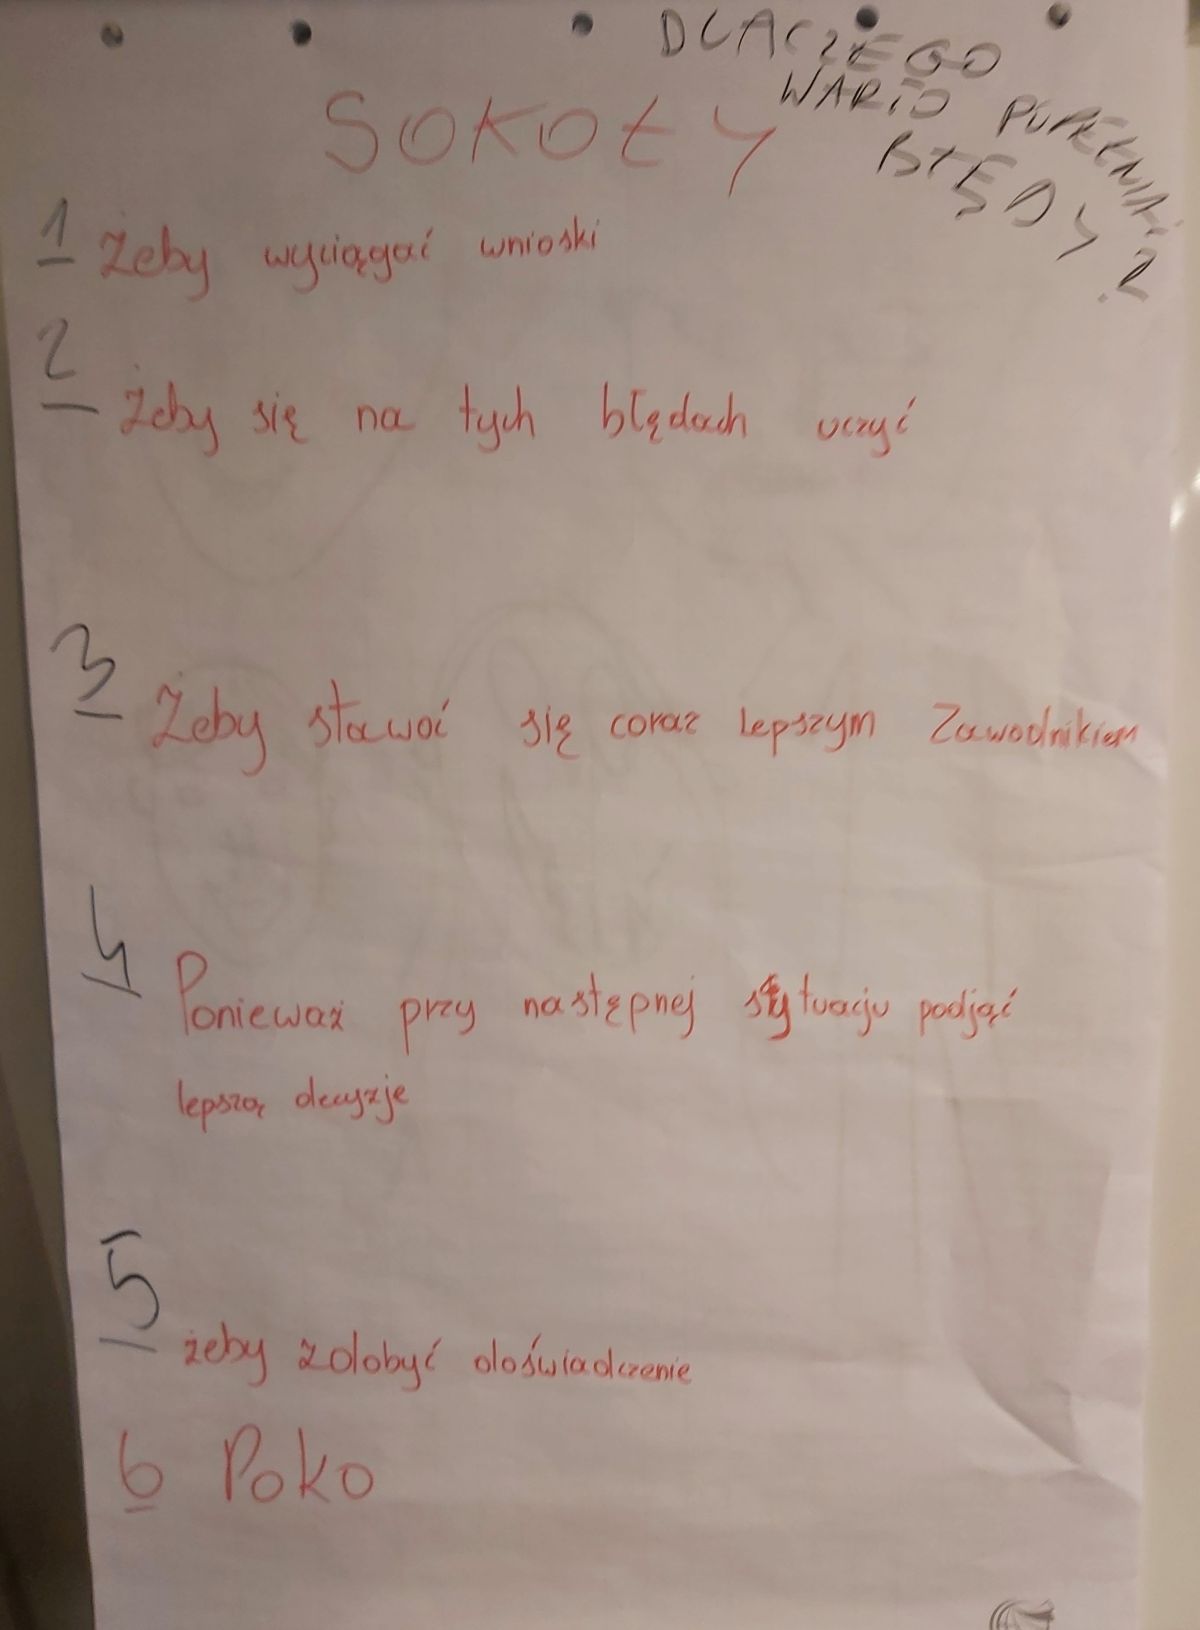 DLACZEGO
WARTO POPEŁNIAĆ
BŁĘDY?
SOKOŁY
1 Żeby wyciągać wnioski
2 Żeby się na tych błędach uczyć
3 Żeby stawać się coraz lepszym Zawodnikiem
4 Ponieważ przy następnej sytuacju podjąć
lepszą decyzje
5 żeby zdobyć doświadczenie
6 Poko